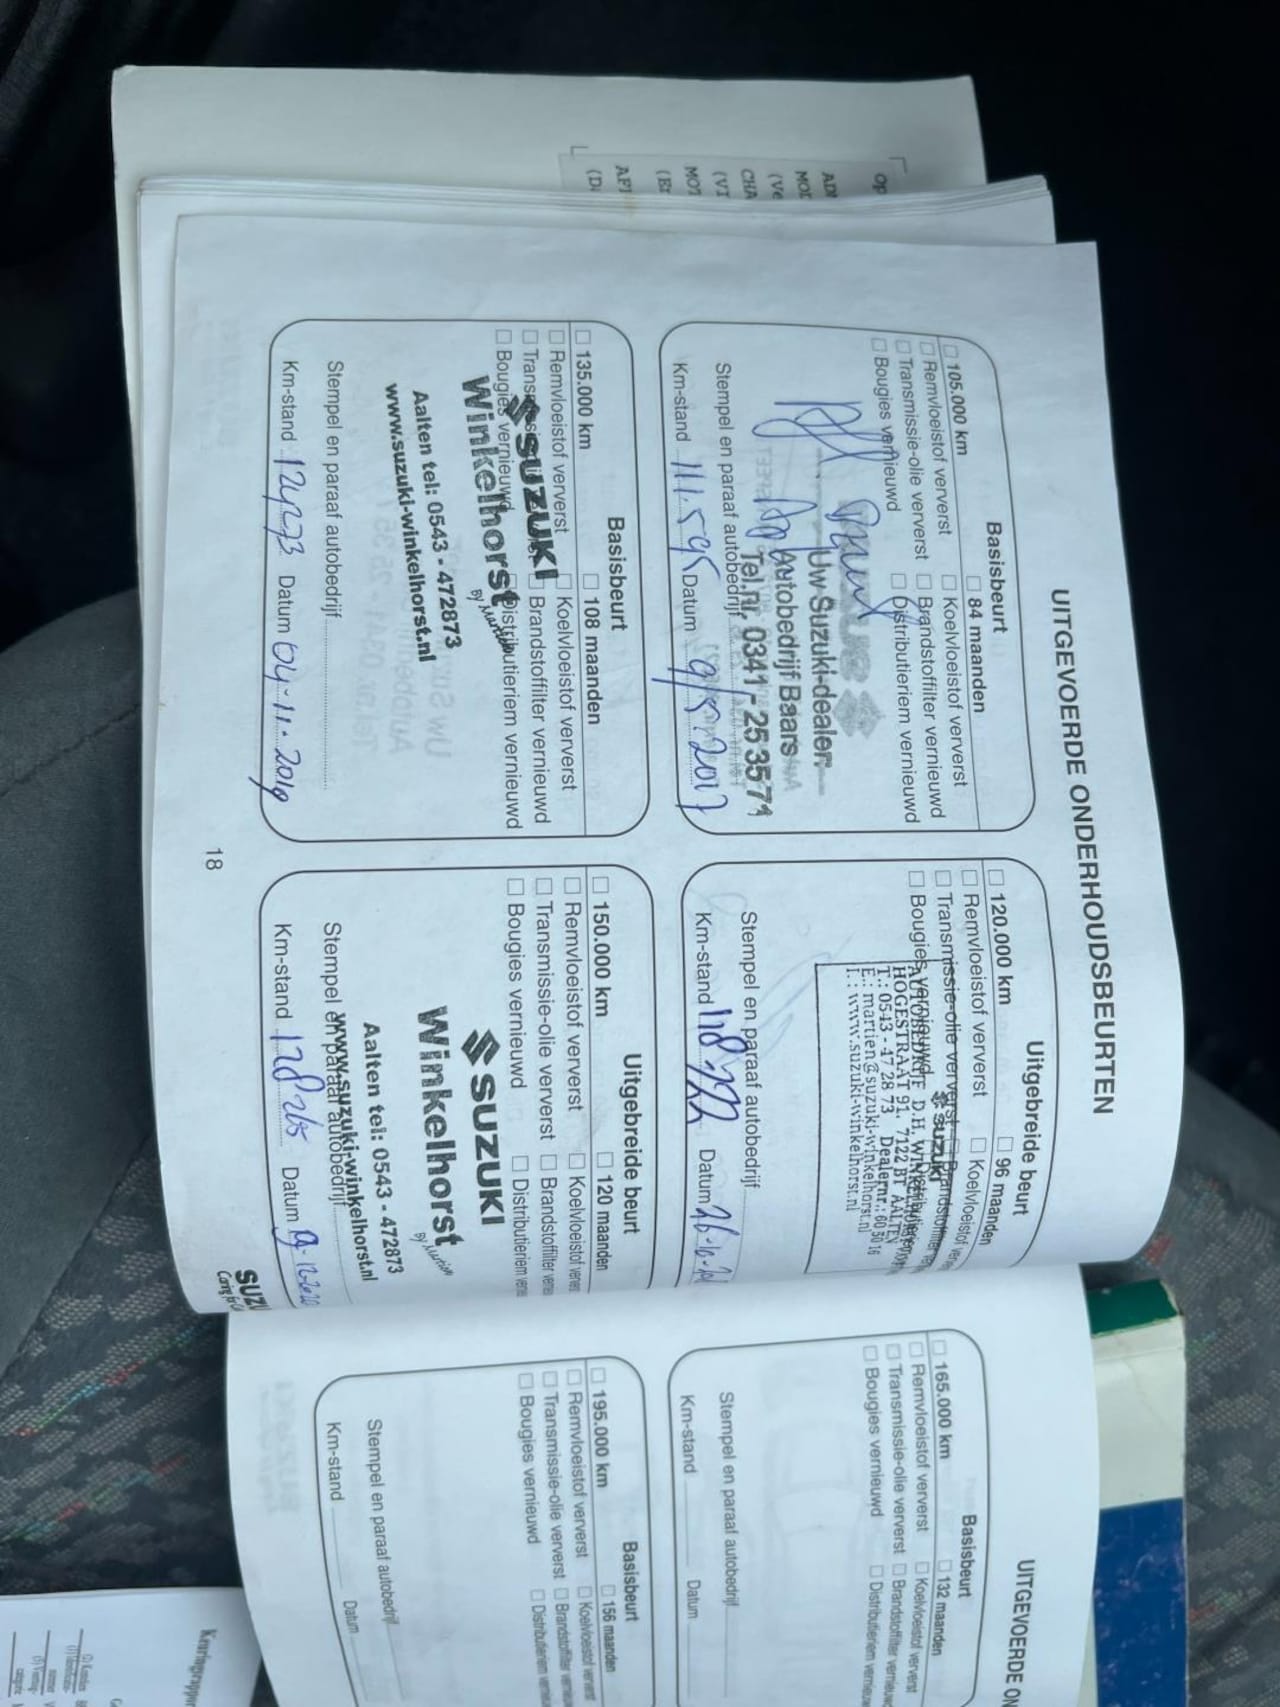 UITGEVOERDE ONDERHOUDSBEURTEN
Basisbeurt
105.000 km
84 maanden
Remvloeistof ververst
Koelvloeistof ververst
Transmissie-olie ververst
Brandstoffilter vernieuwd
Bougies vernieuwd
Distributieriem vernieuwd
Uw Suzuki-dealer
Autobedrijf Baars
Tel.nr. 0341 - 25 35 71
Stempel en paraaf autobedrijf
Km-stand 111.595 Datum 9/5.2017
Uitgebreide beurt
120.000 km
96 maanden
Remvloeistof ververst
Koelvloeistof
Transmissie-olie ververst
Brandstoffilter
Bougies vernieuwd
SUZUKI
AUTOBEDRIJF D.H.
HOGESTRAAT 91, 7122 BT AALTEN
T.: 0543 - 47 28 73 Dealernr.: 60 50 16
E.: martien@suzuki-winkelhorst.nl
I.: www.suzuki-winkelhorst.nl
Stempel en paraaf autobedrijf
Km-stand Datum
Basisbeurt
135.000 km
108 maanden
Remvloeistof ververst
Koelvloeistof ververst
Brandstoffilter vernieuwd
Bougies vernieuwd
Distributieriem vernieuwd
SUZUKI
Winkelhorst
by Martien
Aalten tel: 0543 - 472873
www.suzuki-winkelhorst.nl
Stempel en paraaf autobedrijf
Km-stand 124273 Datum 04.11.2019
Uitgebreide beurt
150.000 km
120 maanden
Remvloeistof ververst
Koelvloeistof
Transmissie-olie ververst
Brandstoffilter
Bougies vernieuwd
Distributieriem
SUZUKI
Winkelhorst
by Martien
Aalten tel: 0543 - 472873
www.suzuki-winkelhorst.nl
Stempel en paraaf autobedrijf
Km-stand Datum
18
UITGEVOERDE
Basisbeurt
165.000 km
132 maanden
Remvloeistof ververst
Koelvloeistof ververst
Transmissie-olie ververst
Brandstoffilter
Bougies vernieuwd
Distributieriem
Stempel en paraaf autobedrijf
Km-stand Datum
Basisbeurt
195.000 km
156 maanden
Remvloeistof ververst
Koelvloeistof ververst
Transmissie-olie ververst
Brandstoffilter
Bougies vernieuwd
Distributieriem
Stempel en paraaf autobedrijf
Km-stand Datum